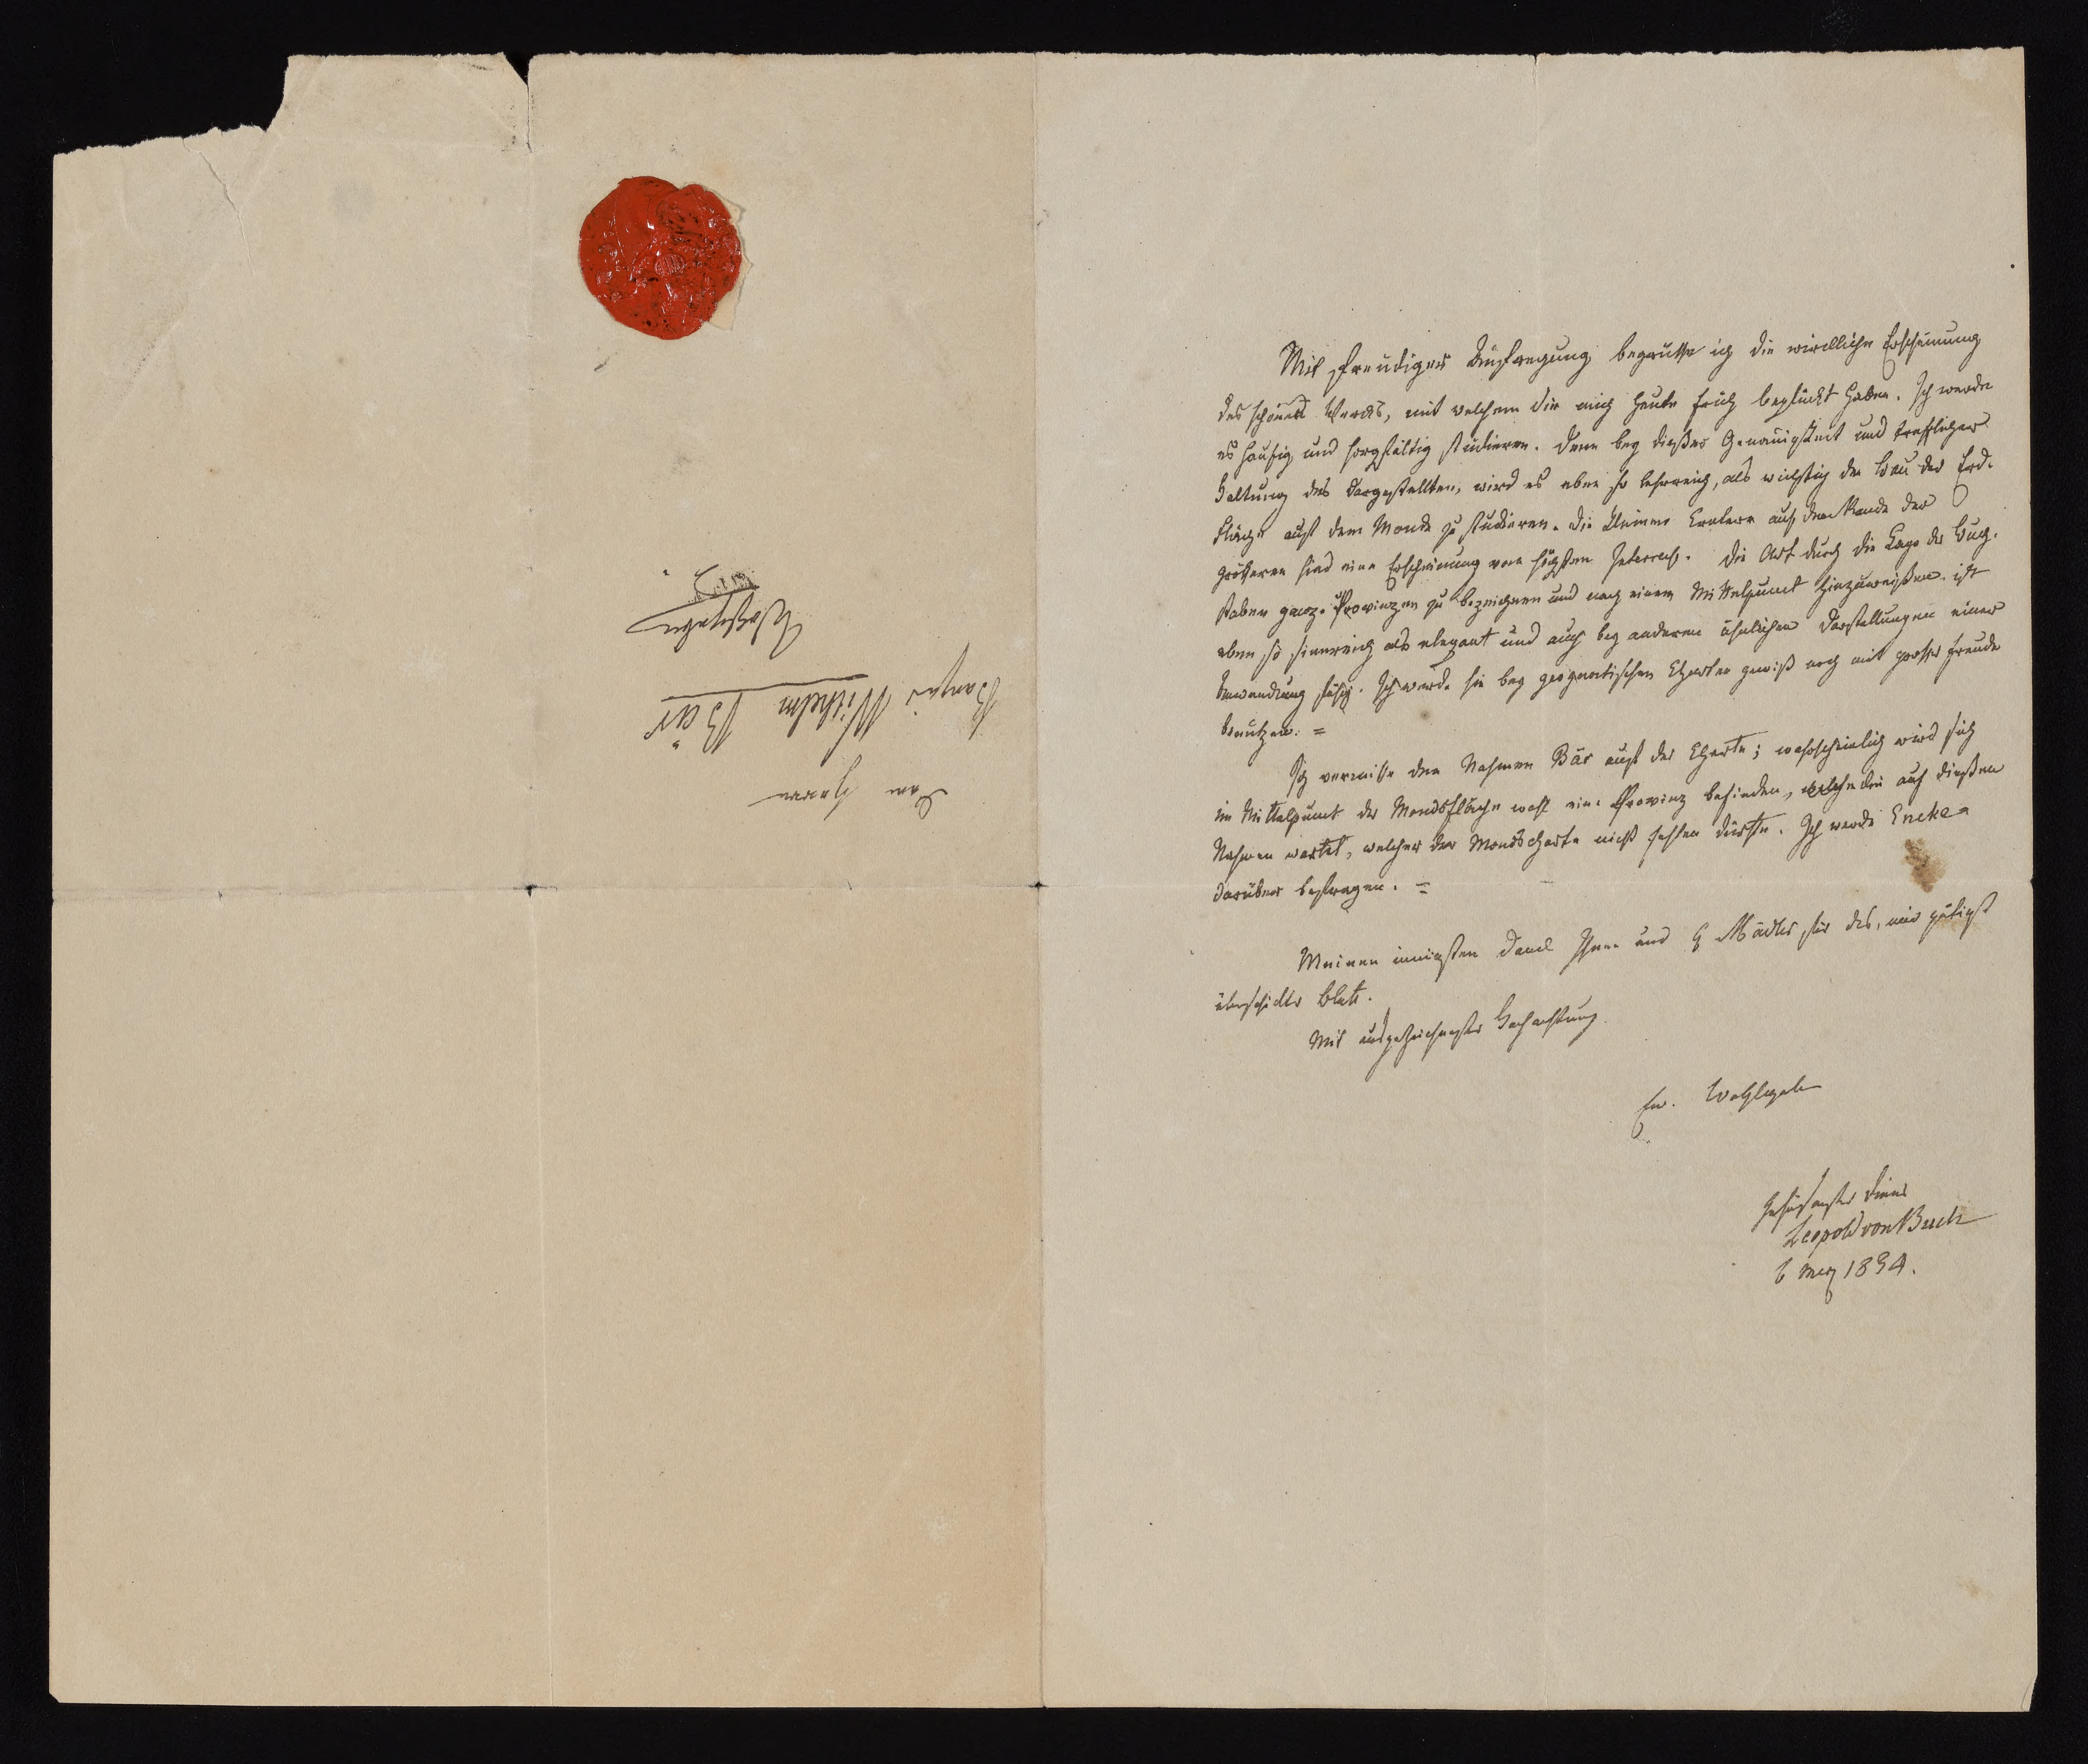 Mit freudiger Aufregung begrüsse ich die wirckliche Erscheinung
des schönen Wercks, mit welchem Sie mich heute früh beglückt haben. Ich werde
es häufig und sorgfältig studieren. Denn bey dießer Genauigkeit und trefflicher
Haltung des Dargestellten, wird es eben so lehrreich, als wichtig den Bau der Erd-
fläche auf dem Monde zu studieren. Die kleinen Cratere auf dem Rande der
größeren sind eine Erscheinung vom höchsten Interesse. Die Art durch die Lage der Buch-
staben ganze Provinzen zu bezeichnen und nach einem Mittelpunct hinzuweißen ist
eben so sinnreich als elegant und auch bey anderen ähnlichen Darstellungen einer
Anwendung fähig. Ich werde sie bey geognostischen Charten gewiß noch mit grosser Freude
benutzen. =
Ich vermisse den Nahmen Bär auf der Charte; wahrscheinlich wird sich
im Mittelpunct der Mondsfläche wohl eine Provinz befinden, welche auf dießen
Nahmen wartet, welcher der Mondscharte nicht fehlen dürfte. Ich werde Encke
darüber befragen. =
Meinen innigsten Danck Ihnen und H Mädler für das, mir gütigst
überschickte Blatt.
Mit ausgezeichnetster Hochachtung
Ew. Wohlgeb
gehorsamster Diener
Leopold von Buch
6 Merz 1834.
Dem Herrn
Banquier Wilhelm Bär
Wohlgeboren